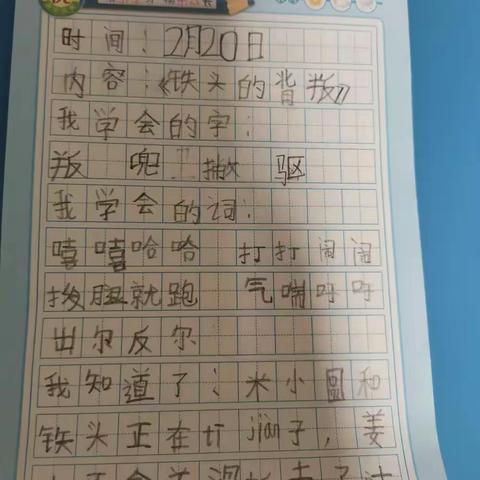 时间：2月20日
内容：《铁头的背叛》
我学会的字：
叛 兜 撇 驱
我学会的词：
嘻嘻哈哈 打打闹闹
拨腿就跑 气喘吁吁
出尔反尔
我知道了：米小圈和
铁头正在tī jiàn子，姜